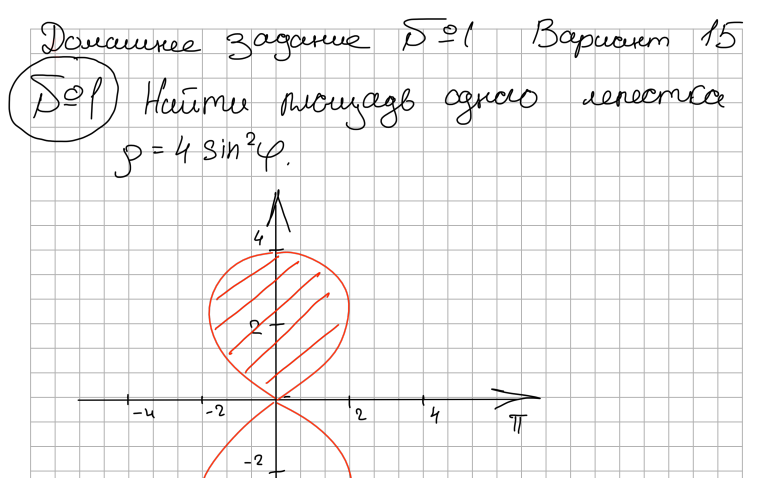 Домашнее задание №1 Вариант 15
№1 Найти площадь одного лепестка
ρ = 4 sin²φ.
4
2
-4 -2 2 4 π
-2